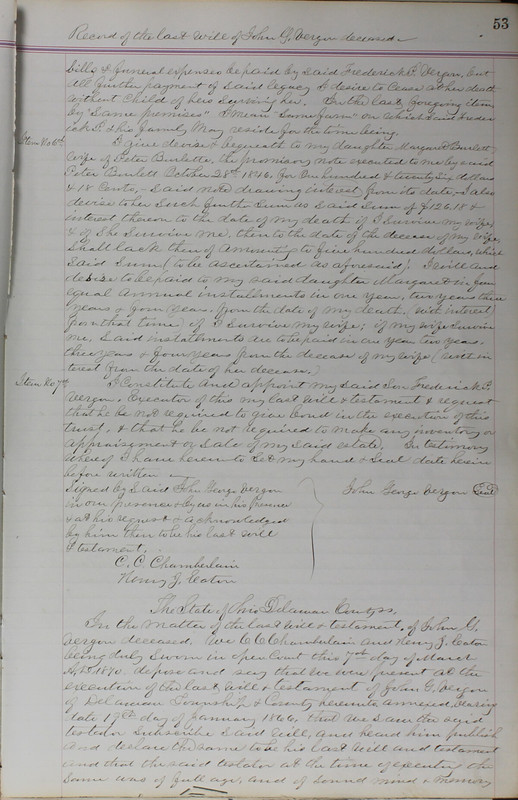 53
Record of the last will of John G. Vergon deceased
bills & funeral expenses be paid by said Frederick P. Vergon, but
all further payment of said legacy I desire to cease at her death
without child of hers surviving her. In the last foregoing item
by "same premises" I mean "home farm" on which said Freder
ick P. & his family may reside for the time being.
Item No 6th. I give devise & bequeath to my daughter Margaret Burlett
wife of Peter Burlette, the promissory note executed to me by said
Peter Burlett October 28th 1846. for One hundred & twenty six dollars
& 18 Cents, - Said note drawing interest from its date, - I also
devise to her such further sum as said sum of $126.18 &
interest thereon to the date of my death if I survive my wife,
& if she survive me, then to the date of the decease of my wife,
shall lack then of amounting to five hundred dollars, which
said sum (to be ascertained as aforesaid) I will and
desire to be paid to my said daughter Margaret in four
equal annual instalments in one year, two years three
years & four years from the date of my death, (with interest
from that time) if I survive my wife; if my wife survive
me, said instalments are to be paid in one year two years,
three years & four years from the decease of my wife (with in
terest from the date of her decease.)
Item No 7th. I Constitute and appoint my said Son Frederick P.
Vergon, Executor of this my last will & testament & request
that he be not required to give bond in the execution of this
trust, & that he be not required to make any inventory or
appraisement or sale of my said estate. In testimony
whereof I have hereunto set my hand & seal date herein
before written
Signed by said John George Vergon
in our presence & by us in his presence
& at his request & acknowledged
by him then to be his last will
& testament.
John George Vergon Seal
C. C. Chamberlain
Henry J. Eaton
The State of Ohio Delaware County ss.
In the matter of the last will & testament, of John G.
Vergon deceased. We C C Chamberlain and Henry J. Eaton
being duly sworn in open Court this 7th day of March
A.D. 1870. depose and say that we were present at the
execution of the last will & testament of John G. Vergon
of Delaware Township & County hereunto annexed, bearing
date 17th day of January 1866, that we saw the said
testator subscribe said will, and heard him publish
and declare the same to be his last will and testament
and that the said testator at the time of executing the
same was of full age, and of sound mind & memory